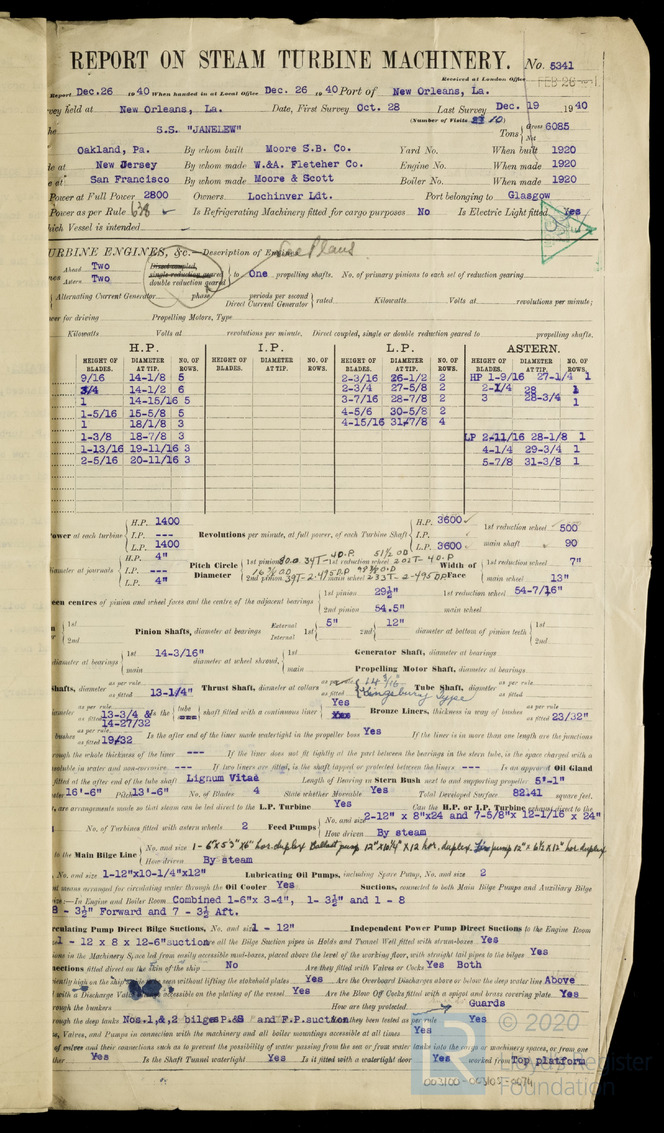 REPORT ON STEAM TURBINE MACHINERY. No. 5341
Received at London Office FEB 26
Report Dec.26 1940 When handed in at Local Office Dec. 26 1940 Port of New Orleans, La.
vey held at New Orleans, La. Date, First Survey Oct. 28 Last Survey Dec. 19 1940
(Number of Visits 10)
S.S. "JANELEW" Tons Gross 6085 Net
Oakland, Pa. By whom built Moore S.B. Co. Yard No. When built 1920
de at New Jersey By whom made W.&A. Fleteher Co. Engine No. When made 1920
e at San Francisco By whom made Moore & Scott Boiler No. When made 1920
Power at Full Power 2800 Owners Lochinver Ldt. Port belonging to Glasgow
Power as per Rule 638 Is Refrigerating Machinery fitted for cargo purposes No Is Electric Light fitted Yes
hich Vessel is intended
URBINE ENGINES, &c.—Description of Engines See Plans
Ahead Two Direct coupled, single reduction geared double reduction geared } to One propelling shafts. No. of primary pinions to each set of reduction gearing
Astern Two
Alternating Current Generator phase periods per second Direct Current Generator } rated Kilowatts Volts at revolutions per minute;
wer for driving Propelling Motors, Type
Kilowatts Volts at revolutions per minute. Direct coupled, single or double reduction geared to propelling shafts.
H.P. I.P. L.P. ASTERN.
HEIGHT OF BLADES. DIAMETER AT TIP. NO. OF ROWS. HEIGHT OF BLADES. DIAMETER AT TIP. NO. OF ROWS. HEIGHT OF BLADES. DIAMETER AT TIP. NO. OF ROWS. HEIGHT OF BLADES. DIAMETER AT TIP. NO. OF ROWS.
9/16 14-1/8 5 2-3/16 26-1/2 2 HP 1-9/16 27-1/4 1
3/4 14-1/2 6 2-3/4 27-5/8 2 2-1/4 28 1
1 14-15/16 5 3-7/16 28-7/8 2 3 28-3/4 1
1-5/16 15-5/8 5 4-5/6 30-5/8 2
1 18/1/8 3 4-15/16 31-7/8 4
1-3/8 18-7/8 3 LP 2-11/16 28-1/8 1
1-13/16 19-11/16 3 4-1/4 29-3/4 1
2-5/16 20-11/16 3 5-7/8 31-3/8 1
ower at each turbine H.P. 1400 I.P. --- L.P. 1400 Revolutions per minute, at full power, of each Turbine Shaft H.P. 3600 I.P. L.P. 3600 1st reduction wheel 500 main shaft 90
diameter at journals H.P. 4" I.P. --- L.P. 4" Pitch Circle Diameter 1st pinion 1st reduction wheel 2nd pinion main wheel Width of Face 1st reduction wheel 7" main wheel 13"
een centres of pinion and wheel faces and the centre of the adjacent bearings 1st pinion 29½" 2nd pinion 54.5" 1st reduction wheel 54-7/16" main wheel
Pinion Shafts, diameter at bearings External Internal 1st 5" 2nd 12" diameter at bottom of pinion teeth 1st 2nd
diameter at bearings 1st 14-3/16" main diameter at wheel shroud, 1st main Generator Shaft, diameter at bearings
Propelling Motor Shaft, diameter at bearings
hafts, diameter as per rule as fitted 13-1/4" Thrust Shaft, diameter at collars as per rule as fitted 14 3/16" Kingsbury Type Tube Shaft, diameter as per rule as fitted
diameter as per rule as fitted 13-3/4 & 14-27/32 Is the tube shaft fitted with a continuous liner Yes Bronze Liners, thickness in way of bushes as per rule as fitted 23/32"
bushes as per rule as fitted 19/32 Is the after end of the liner made watertight in the propeller boss Yes If the liner is in more than one length are the junctions
rough the whole thickness of the liner --- If the liner does not fit tightly at the part between the bearings in the stern tube, is the space charged with a
soluble in water and non-corrosive --- If two liners are fitted, is the shaft lapped or protected between the liners --- Is an approved Oil Gland
fitted at the after end of the tube shaft Lignum Vitaé Length of Bearing in Stern Bush next to and supporting propeller 5'-1"
16'-6" Pitch 13'-6" No. of Blades 4 State whether Moveable Yes Total Developed Surface 82.41 square feet.
t, are arrangements made so that steam can be led direct to the L.P. Turbine Yes Can the H.P. or I.P. Turbine exhaust direct to the
No. of Turbines fitted with astern wheels 2 Feed Pumps { No. and size 2-12" x 8"x24 and 7-5/8"x 12-1/16 x 24" How driven By steam
to the Main Bilge Line { No. and size 1 - 6"x5¾"x6" hor. duplex Ballast pump 12"x10¼"x12 hor. duplex. Fire pump 12"x 6½x12" hor. duplex
How driven By steam
No. and size 1-12"x10-1/4"x12" Lubricating Oil Pumps, including Spare Pump, No. and size 2
nt means arranged for circulating water through the Oil Cooler Yes Suctions, connected to both Main Bilge Pumps and Auxiliary Bilge
:—In Engine and Boiler Room Combined 1-6"x 3-4", 1- 3½" and 1 - 8
8 - 3½" Forward and 7 - 3½ Aft.
rculating Pump Direct Bilge Suctions, No. and size 1 - 12" Independent Power Pump Direct Suctions to the Engine Room
1 - 12 x 8 x 12-6"suction Are all the Bilge Suction pipes in Holds and Tunnel Well fitted with strum-boxes Yes
ions in the Machinery Space led from easily accessible mud-boxes, placed above the level of the working floor, with straight tail pipes to the bilges Yes
nections fitted direct on the skin of the ship No Are they fitted with Valves or Cocks Yes Both
iently high on the ship's seen without lifting the stokehold plates Yes Are the Overboard Discharges above or below the deep water line Above
with a Discharge Valve accessible on the plating of the vessel Yes Are the Blow Off Cocks fitted with a spigot and brass covering plate Yes
rough the bunkers How are they protected Guards
rough the deep tanks Nos.1,&,2 bilges P.&S and F.P.suction Have they been tested as per rule Yes
s, Valves, and Pumps in connection with the machinery and all boiler mountings accessible at all times Yes
of valves and their connections such as to prevent the possibility of water passing from the sea or from water tanks into the cargo or machinery spaces, or from one
ther Yes Is the Shaft Tunnel watertight Yes Is it fitted with a watertight door Yes worked from Top platform
© 2020
Lloyd's Register
Foundation